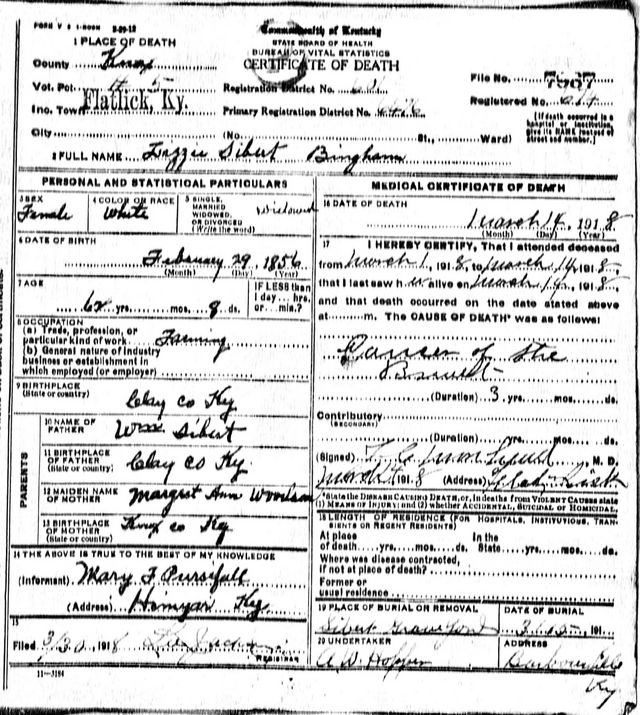 FORM V S 1-100M 3-29-12
Commonwealth of Kentucky
STATE BOARD OF HEALTH
BUREAU OF VITAL STATISTICS
CERTIFICATE OF DEATH
1 PLACE OF DEATH
County Knox
Vot. Pct. 5
Registration District No. 621
File No. 7967
Inc. Town Flatlick, Ky.
Primary Registration District No.
Registered No.
City (No. St., Ward)
[If death occurred in a hospital or institution, give its NAME instead of street and number.]
2 FULL NAME Lizzie Sibert Bingham
PERSONAL AND STATISTICAL PARTICULARS
3 SEX Female
4 COLOR OR RACE White
5 SINGLE, MARRIED WIDOWED, OR DIVORCED (Write the word) Widowed
6 DATE OF BIRTH
February 29, 1856
(Month) (Day) (Year)
7 AGE
62 yrs. mos. 8 ds.
IF LESS than 1 day... hrs. or... min.?
8 OCCUPATION
(a) Trade, profession, or particular kind of work Farming
(b) General nature of industry business or establishment in which employed (or employer)
9 BIRTHPLACE (State or country)
Clay co Ky
PARENTS
10 NAME OF FATHER Wm Sibert
11 BIRTHPLACE OF FATHER (State or country) Clay co Ky
12 MAIDEN NAME OF MOTHER Margret Ann Woodson
13 BIRTHPLACE OF MOTHER (State or country) Knox co Ky
14 THE ABOVE IS TRUE TO THE BEST OF MY KNOWLEDGE
(Informant) Mary F Pursifull
(Address) Himyar Ky
15
Filed 3/30, 1918
REGISTRAR
11-3184
MEDICAL CERTIFICATE OF DEATH
16 DATE OF DEATH
March 14, 1918
(Month) (Day) (Year)
17 I HEREBY CERTIFY, That I attended deceased
from March 1, 1918, to March 14, 1918,
that I last saw h alive on March 1 , 1918,
and that death occurred on the date stated above
at m. The CAUSE OF DEATH* was as follows:
Cancer of the
(Duration) 3 yrs. mos. ds.
Contributory (SECONDARY)
(Duration) yrs. mos. ds.
(Signed) M. D.
March 1918 (Address) Flat Lick
*State the DISEASE CAUSING DEATH, or, in deaths from VIOLENT CAUSES state (1) MEANS OF INJURY; and (2) whether ACCIDENTAL, SUICIDAL or HOMICIDAL.
18 LENGTH OF RESIDENCE (FOR HOSPITALS, INSTITUTIONS, TRANSIENTS OR RECENT RESIDENTS)
At place of death yrs. mos. ds. In the State yrs. mos. ds.
Where was disease contracted, if not at place of death?
Former or usual residence
19 PLACE OF BURIAL OR REMOVAL
Sibert Graveyard
DATE OF BURIAL
3/15, 191
20 UNDERTAKER
A. W. Hopper
ADDRESS
Barbourville Ky